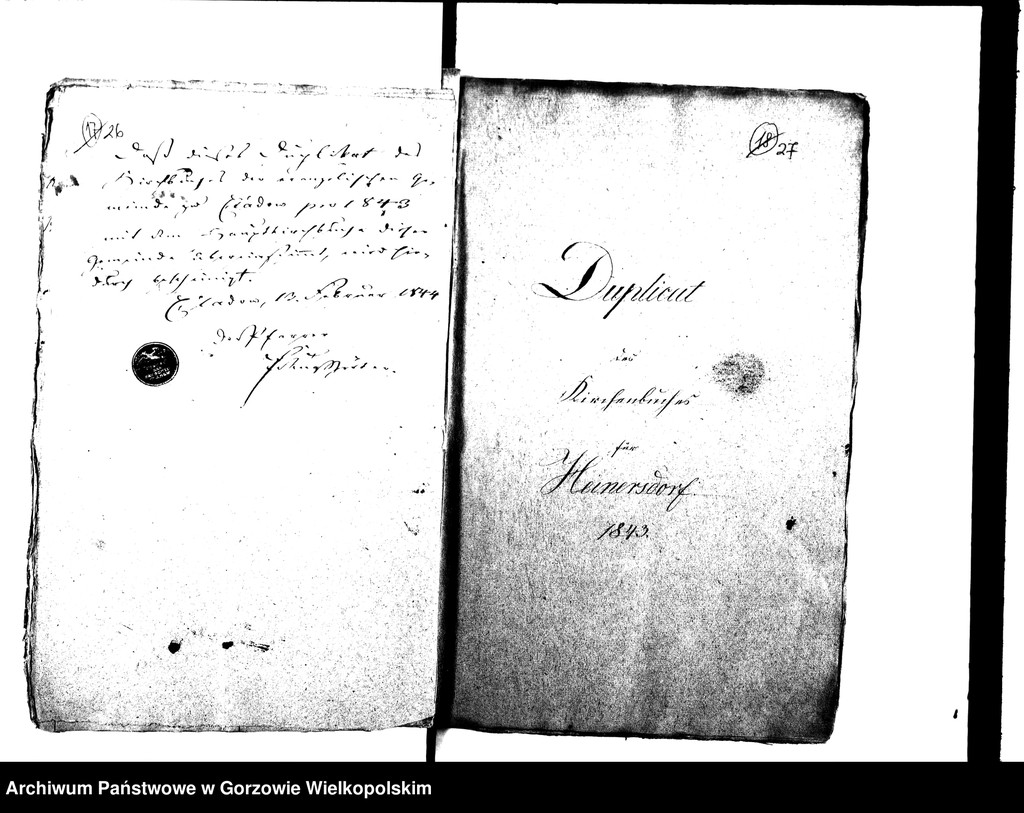 17 26
Daß dieses Duplikat des
Kirchbuches der evangelischen Ge-
meinde zu Cladow pro 1843
mit dem Hauptkirchbuche dieser
Gemeinde übereinstimmt, wird hier-
durch bescheinigt.
Cladow, 13. Februar 1844
Der Pfarrer
18 27
Duplicat
des
Kirchenbuches
für
Heinersdorf
1843.
Archiwum Państwowe w Gorzowie Wielkopolskim